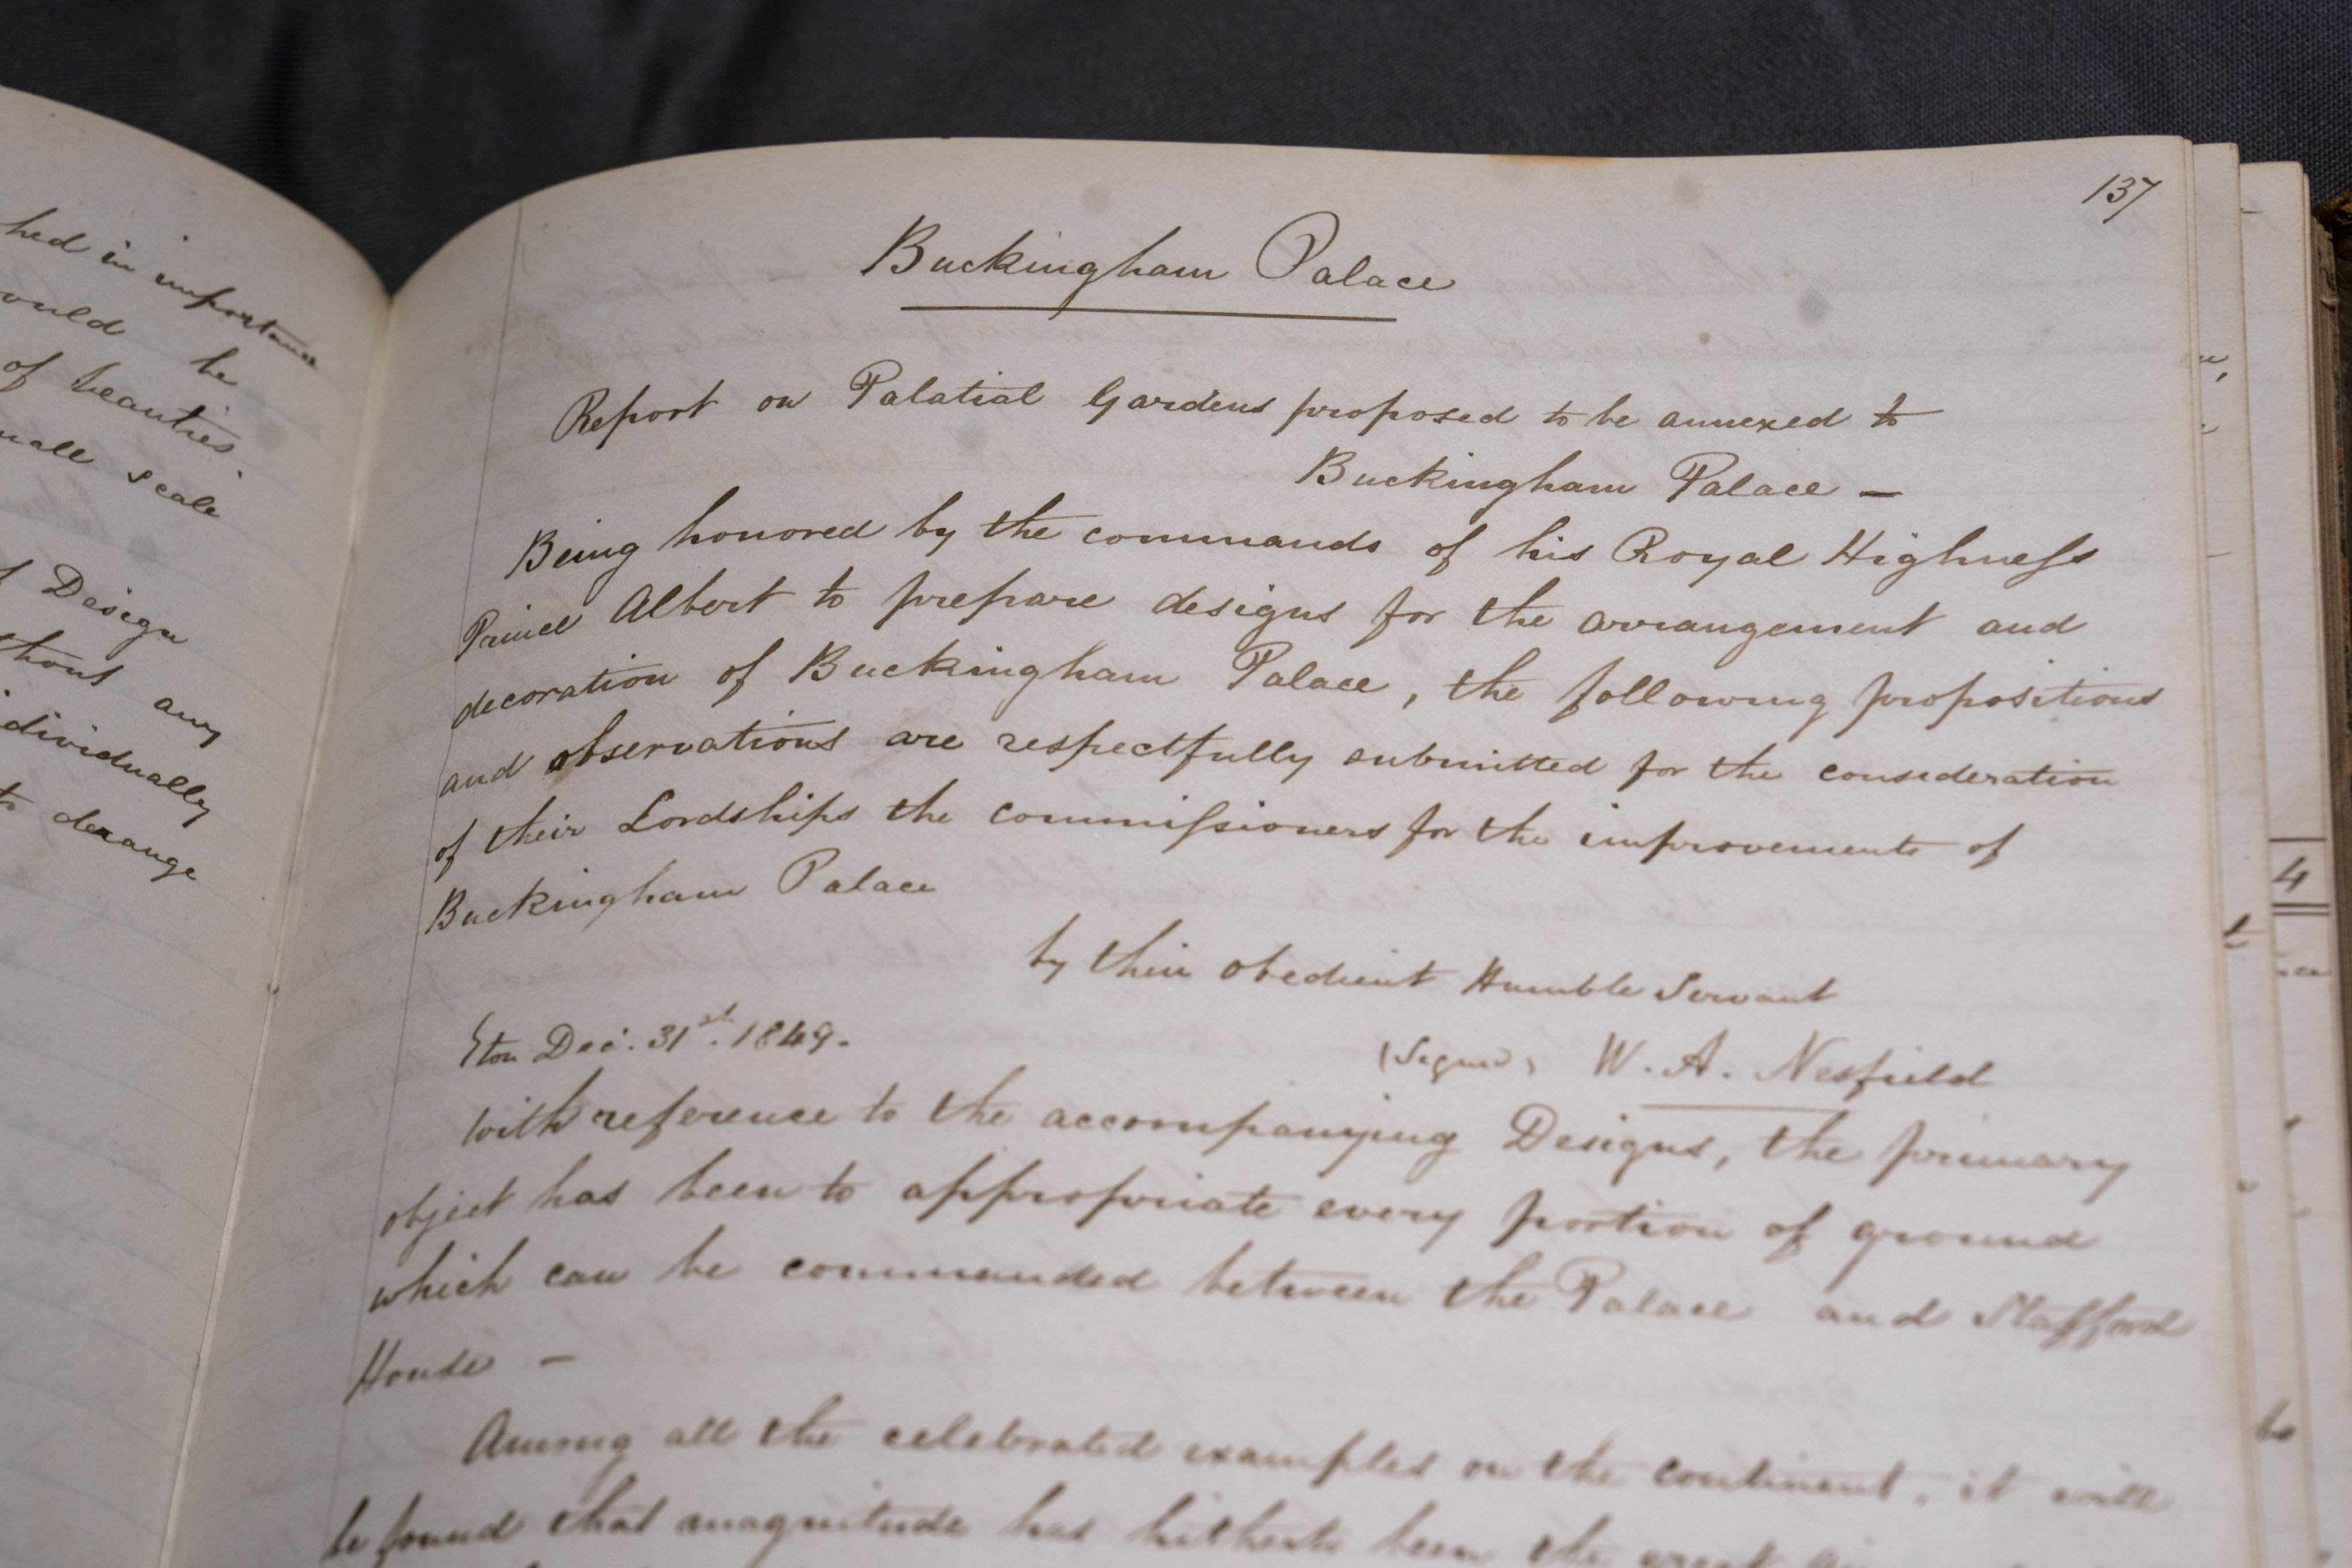 hed in importance
ould be
of beauties
mall scale
Design
thout any
dividually
to derange
137
Buckingham Palace
Report on Palatial Gardens proposed to be annexed to
Buckingham Palace —
Being honored by the commands of his Royal Highness
Prince Albert to prepare designs for the arrangement and
decoration of Buckingham Palace, the following propositions
and observations are respectfully submitted for the consideration
of their Lordships the commissioners for the improvements of
Buckingham Palace
by their obedient Humble Servant
Eton Dec. 31st. 1849.
(Signed) W. A. Nesfield
With reference to the accompanying Designs, the primary
object has been to appropriate every portion of ground
which can be commanded between the Palace and Stafford
House —
Among all the celebrated examples on the continent, it will
be found that magnitude has hitherto been the great
4